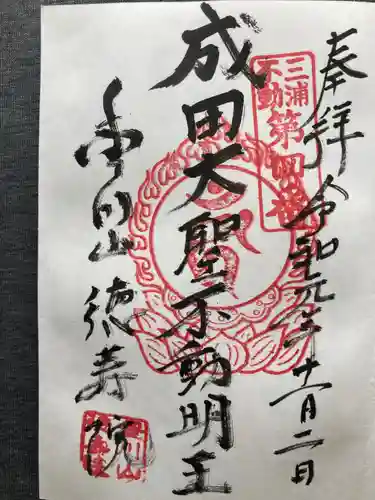 奉拝
令和元年十一月二日
三浦
不動
第四番
成田大聖不動明王
徳寿院